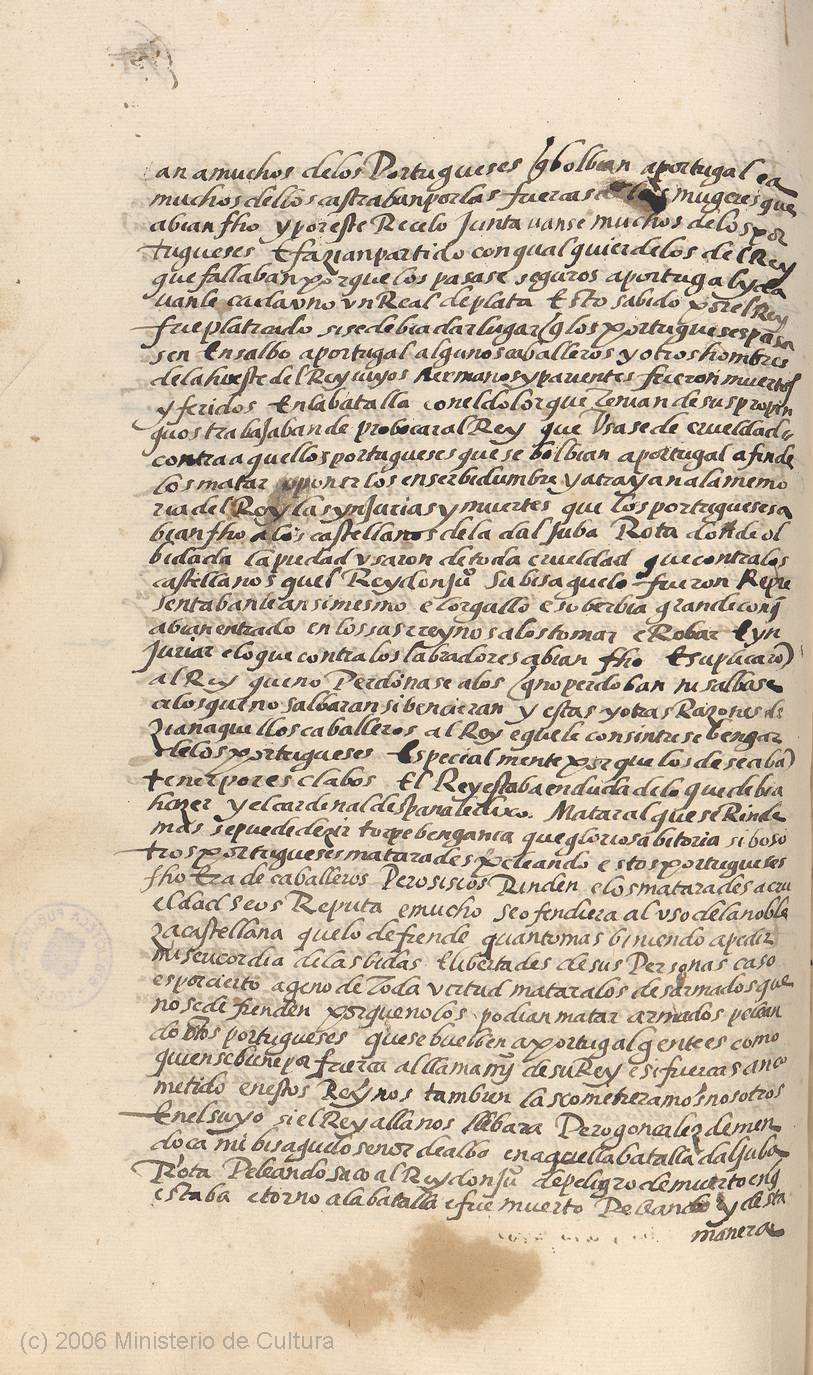 an a muchos de los Portugueses q bolbian a portugal ea
muchos dellos castraban por las fuerças a las mugeres que
abian fho y por este Recelo Juntauanse muchos de los por
tugueses E fazian partido con qualquier de los del Rey
que fallaban porque los pasase seguros a portugal y da
uanle cada vno vn Real de plata Esto sabido por el Rey
fue platicado si se debia dar lugar q los portugueses pasa
sen En salbo a portugal algunos caballeros y otros hombres
de la hueste del Rey cuyos hermanos y parientes fueron muertos
y feridos En la batalla con el dolor que Tenian de sus propin
quos trabaJaban de probocar al Rey que Vsase de crueldad
contra aquellos portugueses que se bolbian a portugal a fin de
los matar o poner los en serbidumbre y atrayan a la memo
ria del Rey las ynJurias y muertes que los portugueses a
bian fho a los castellanos de la dal Juba Rota donde ol
bidada la piedad vsaron de toda crueldad que contra los
castellanos quel Rey don Ju0 su bisaguelo fueron Repre
sentabanle ansimesmo el orgullo e soberbia grande conq
abian entrado en los sus rreynos a los tomar e Robar E yn
Juriar e lo que contra los labradores abian fho E suplicaro
al Rey que no Perdonase a los q no perdoban ni salbase
a los que no salbaran si bencieran y estas y otras Razones de
zian aquellos caballeros al Rey e que le consintiese bengar
de los portugueses Especialmente porque los deseaba
tener por esclabos El Rey estaba en duda de lo que debia
hazer y el cardenal despana le dixo. Matar al que se Rinde
mas se puede dezir torpe bengança que gloriosa bitoria si boso
tros portugueses matarades peleando estos portugueses
fho Era de caballeros Pero si se os Rinden e los matarades a cru
eldad se os Reputa e mucho se ofendiera al vso de la noble
za castellana que lo defiende quanto mas biniendo a pedir
misericordia de las bidas E libertades de sus Personas caso
es por cierto ageno de Toda virtud matar a los desarmados que
no se defienden porque no los podian matar armados pelean
do Estos portugueses que se buelben a portugal gente es como
quien se biene por fuerça al llamamjo de su Rey e si fuerças an co
metido en estos Reynos tambien las cometieramos nosotros
En el suyo si el Rey alla nos llebara Pero gonçalez de men
doca mi bisaguelo señor de alba en aquella batalla dal Juba
Rota Peleando saco al Rey don Ju0 de peligro de muerte en q
estaba e torno a la batalla e fue muerto Peleando y desta
manera
(c) 2006 Ministerio de Cultura